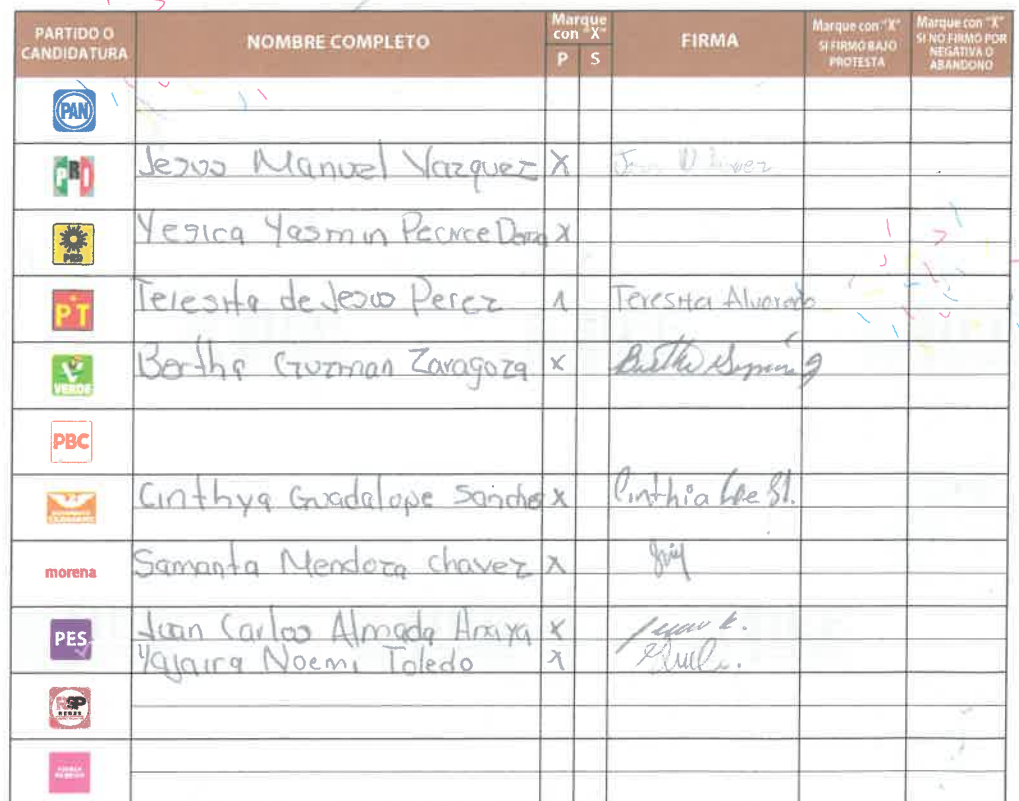 PARTIDO O CANDIDATURA NOMBRE COMPLETO Marque con "X" P S FIRMA Marque con "X" SI FIRMÓ BAJO PROTESTA Marque con "X" SI NO FIRMÓ POR NEGATIVA O ABANDONO
PAN
PRI Jesus Manuel Vazquez X
PRD Yesica Yasmin X
PT Teresita de Jesus Perez Teresita Alvarado
VERDE Bertha Guzman Zaragoza X
PBC
Cinthya Guadalope Sanchez X Cinthia
morena Samanta Mendoza Chavez X
PES Juan Carlos Almada Araya X
Yajaira Noemi Toledo X
RSP